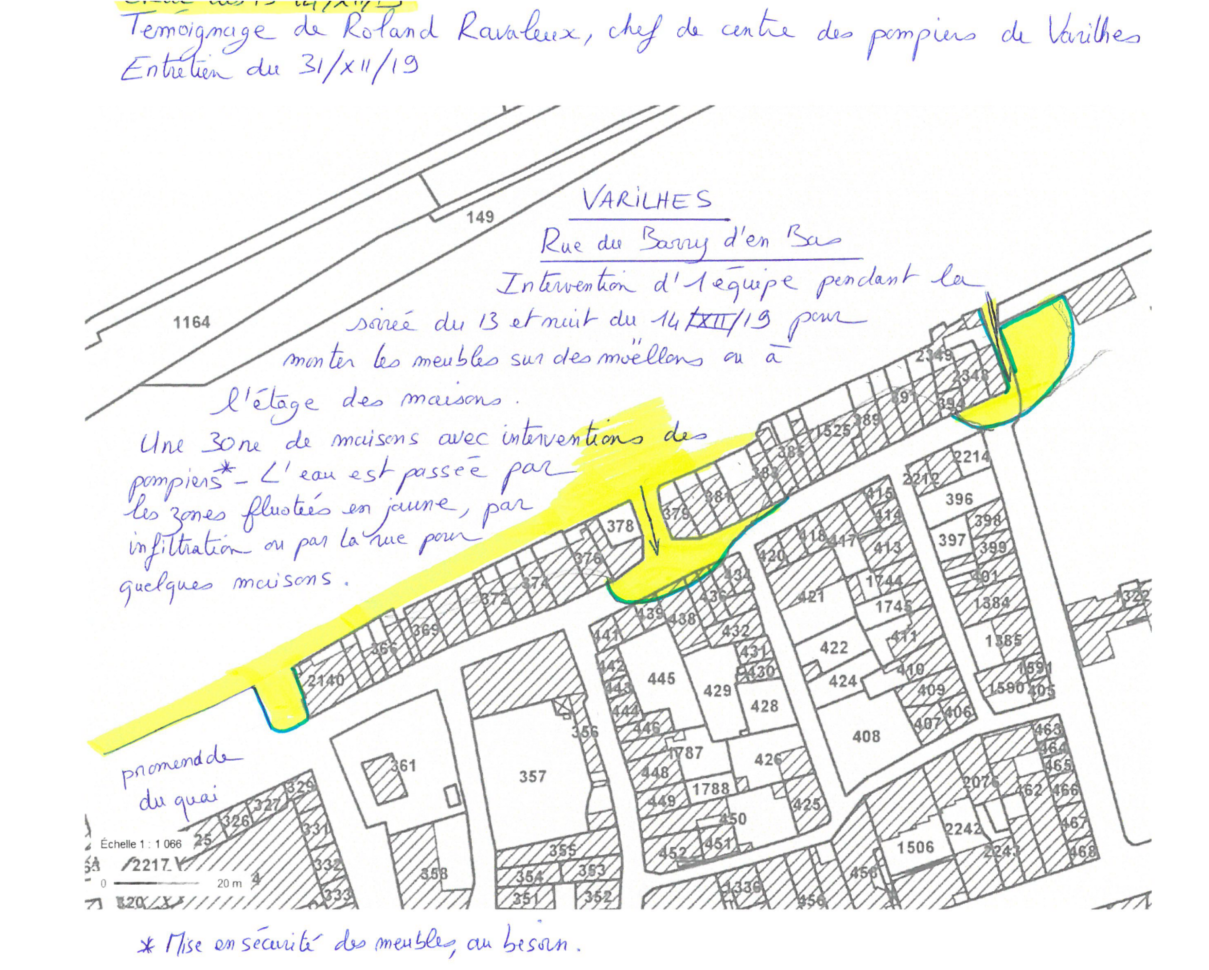 Témoignage de Roland Ravaleux, chef de centre des pompiers de Varilhes
Entretien du 31/XII/19
VARILHES
Rue du Barry d'en Bas
Intervention d'1 équipe pendant la
soirée du 13 et nuit du 14/XII/19 pour
monter les meubles sur des moëllons ou à
l'étage des maisons.
Une zone de maisons avec interventions des
pompiers* - L'eau est passée par
les zones fluotées en jaune, par
infiltration ou par la rue pour
quelques maisons.
149
1164
2349
2348
394
391
389
1525
385
383
381
379
378
376
374
372
369
366
2140
promenade
du quai
2214
2212
396
398
397
399
401
1384
1385
1591
1590
405
1322
415
414
418
417
413
420
421
1744
1745
411
422
410
424
409
408
407
406
434
436
439
438
432
441
431
430
442
445
429
443
428
444
446
356
1787
426
448
357
361
1788
449
425
450
451
452
329
327
326
25
331
332
333
2217
358
355
354
353
351
352
463
464
465
2076
462
466
2242
467
1506
2243
468
458
1336
456
Échelle 1 : 1 066
0 20 m
4
* Mise en sécurité des meubles, au besoin.